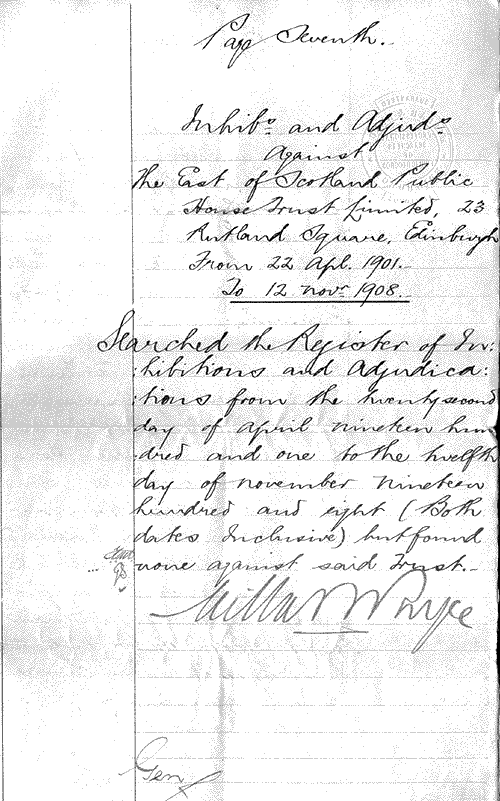 Page Seventh.
Inhibs. and Adjuds.
Against
The East of Scotland Public
House Trust Limited, 23
Rutland Square, Edinburgh
From 22 Apl. 1901.
To 12 Novr. 1908.
Searched the Register of In:
:hibitions and Adjudica:
:tions from the twentysecond
day of April nineteen hun
:dred and one to the twelfth
day of November nineteen
hundred and eight (Both
dates Inclusive) but found
none against said Trust.
Gen